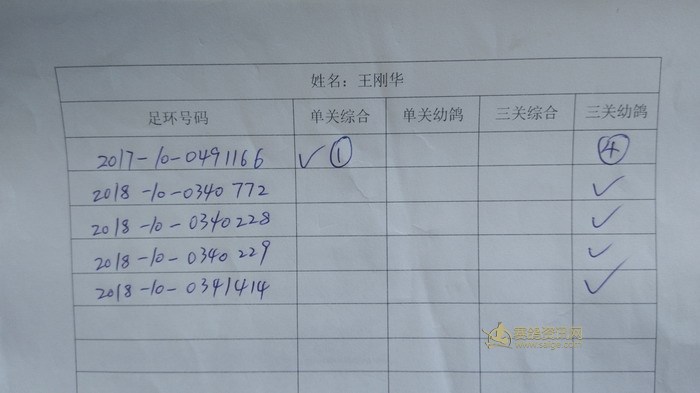 姓名：王刚华
足环号码 单关综合 单关幼鸽 三关综合 三关幼鸽
2017-10-0491166 ✓ ① ④
2018-10-0340772 ✓
2018-10-0340228 ✓
2018-10-0340229 ✓
2018-10-0341414 ✓
赛鸽资讯网
www.saige.com